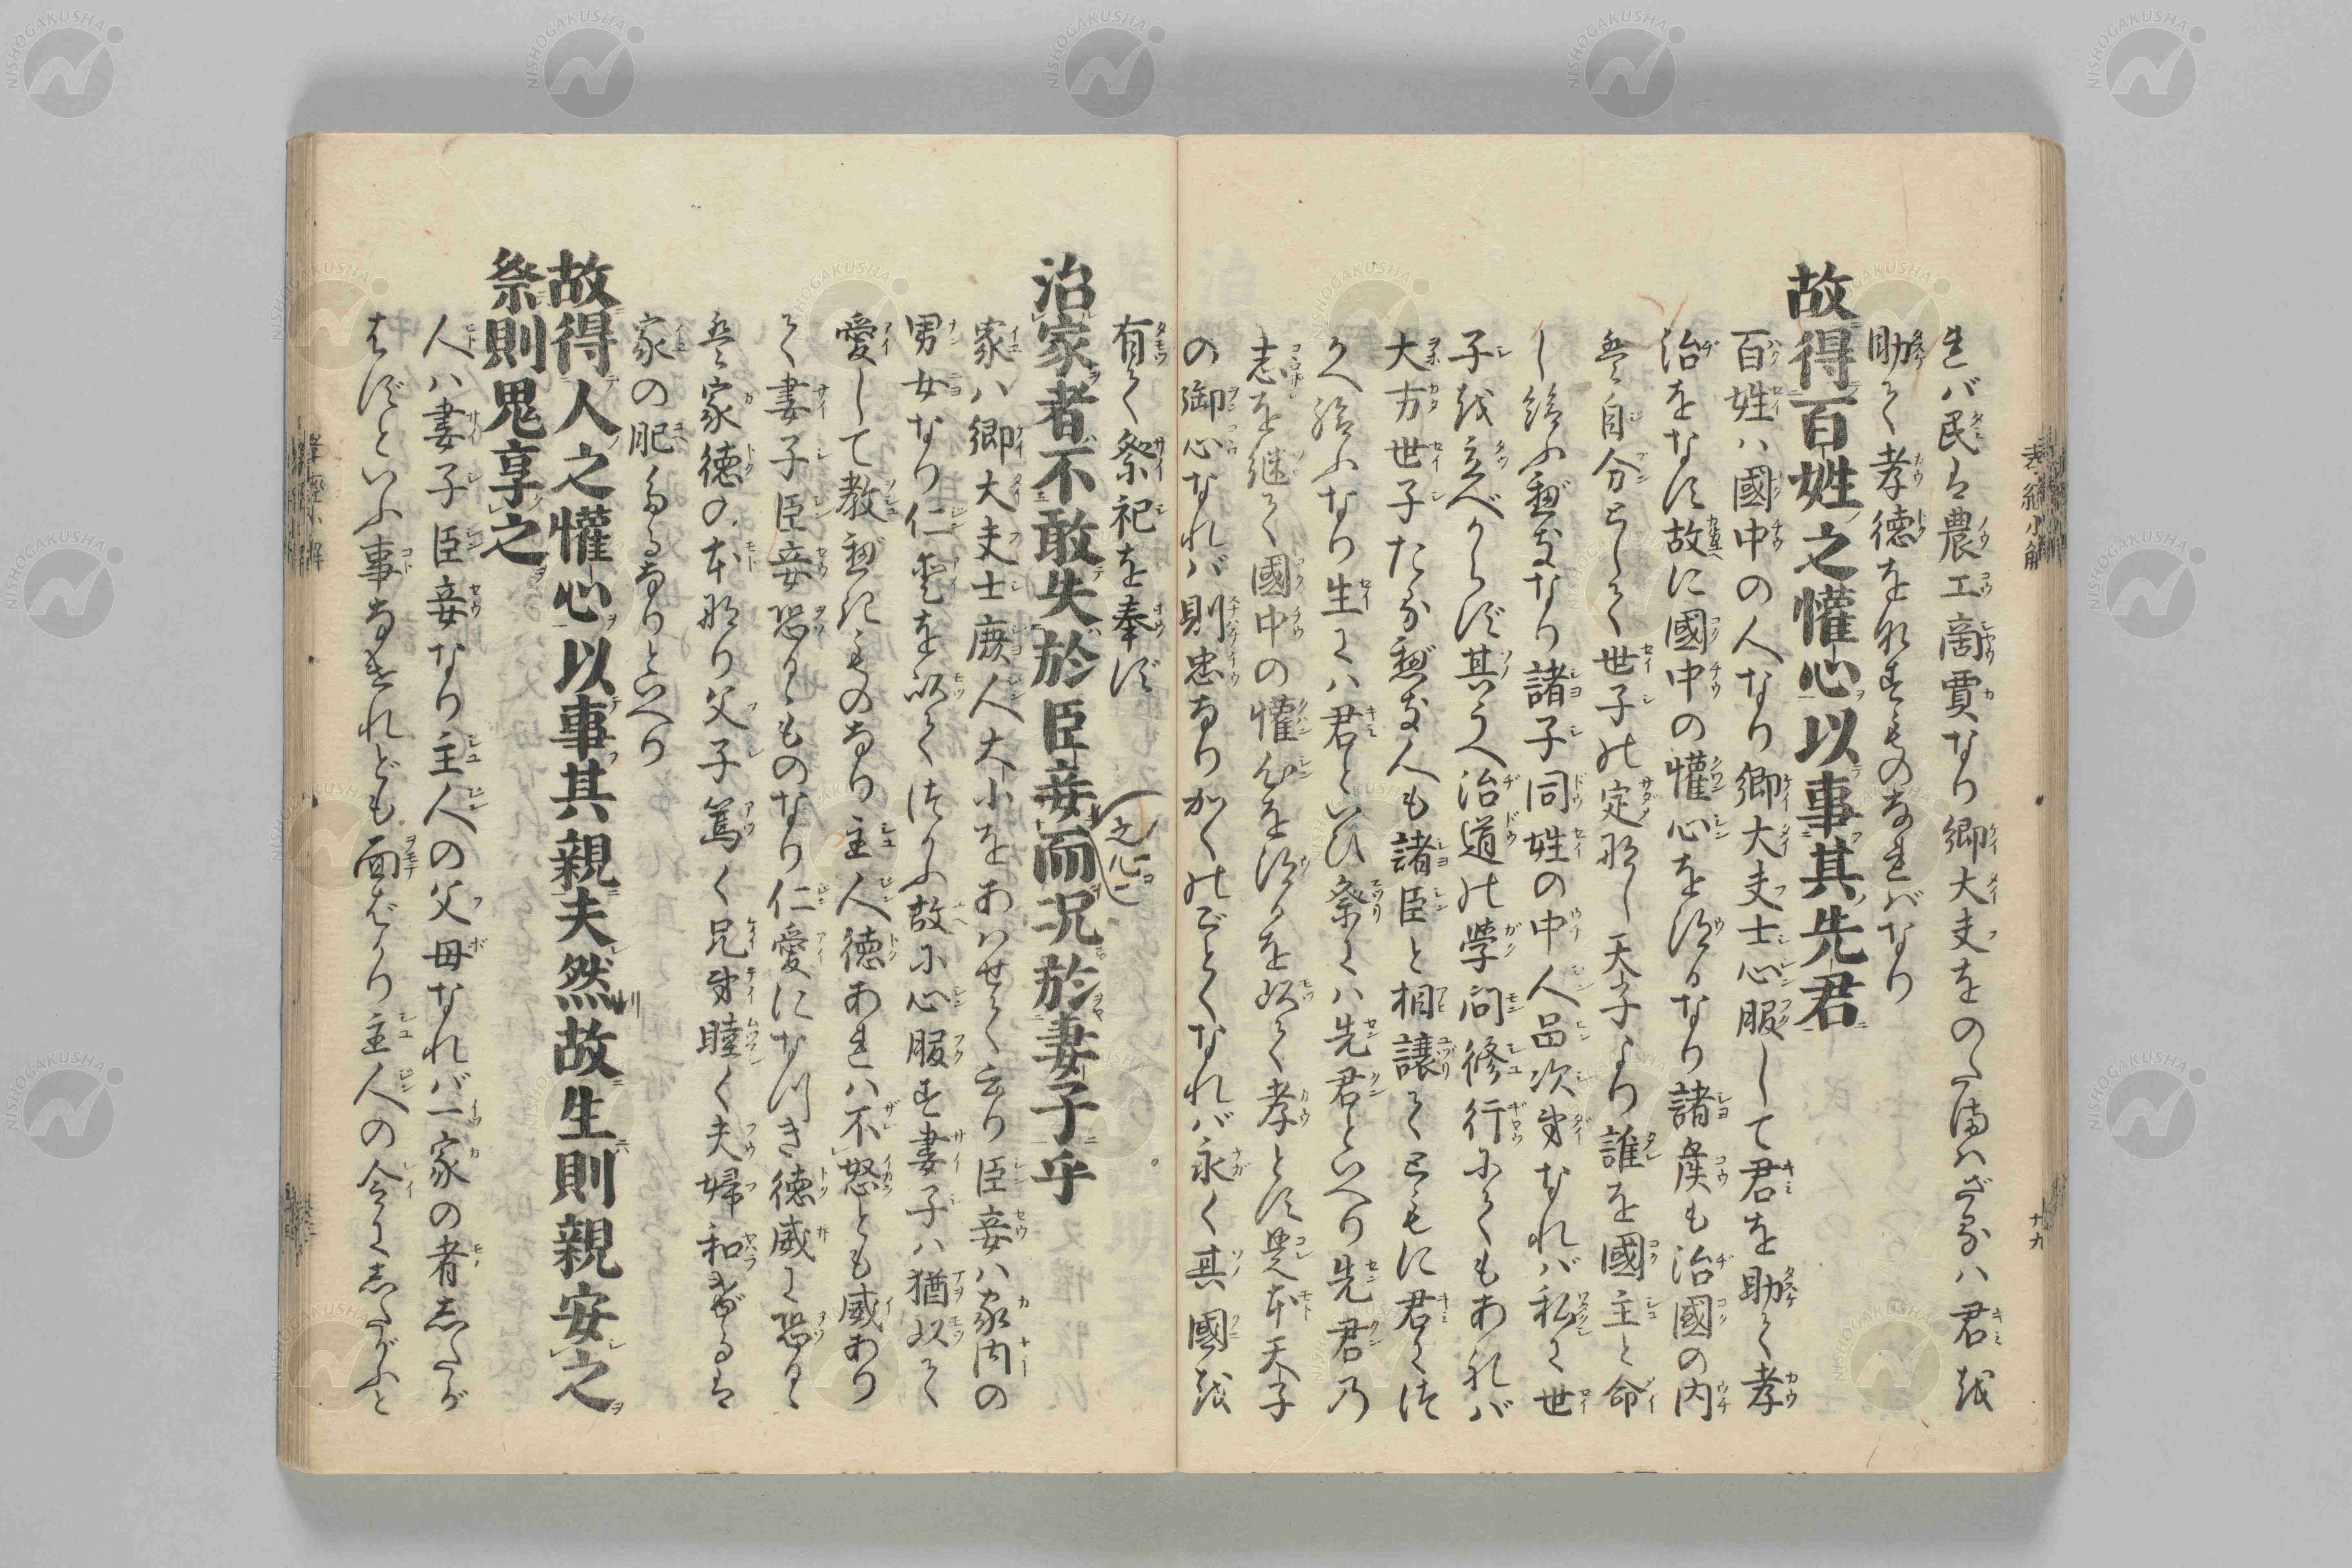 れバ民は農工商賈なり卿大夫をのこさハざるハ君を
助て孝徳をなすものなれバなり
故得百姓之懽心以事其先君
百姓ハ國中の人なり卿大夫士心服して君を助て孝
治をなす故に國中の懽心を得るなり諸侯も治國の内
自分として世子の定なし天子より誰を國主と命
し給ふ義なり諸子同姓の中人品次第なれバ私に世
子を立べからず其うへ治道の学問修行にてもあれバ
大方世子たる義な人も諸臣と相譲てともに君につ
かへ給ふなり生にハ君といひ祭にハ先君といへり先君の
志を継て國中の懽心を得るを以て孝とす是本天子
の御心なれバ則忠なりかくのごとくなれバ永く其國を
有て祭祀を奉ず
治家者不敢失於臣妾而况於妻子乎
之心
家ハ卿大夫士庶人大小をあハせて云り臣妾ハ家内の
男女なり仁愛を以てつかふ故に心服す妻子ハ猶以て
愛して教義きものなり主人徳あれハ不怒とも威あり
て妻子臣妾恐るゝものなり仁愛になつき徳威に恐るゝ
家徳の本なり父子篤く兄弟睦く夫婦和するは
家の肥たるなりといへり
故得人之懽心以事其親夫然故生則親安之
祭則鬼享之
人ハ妻子臣妾なり主人の父母なれバ一家の者したが
はずといふ事なけれども面ばかり主人の令にしたがふと
孝經小解
十九